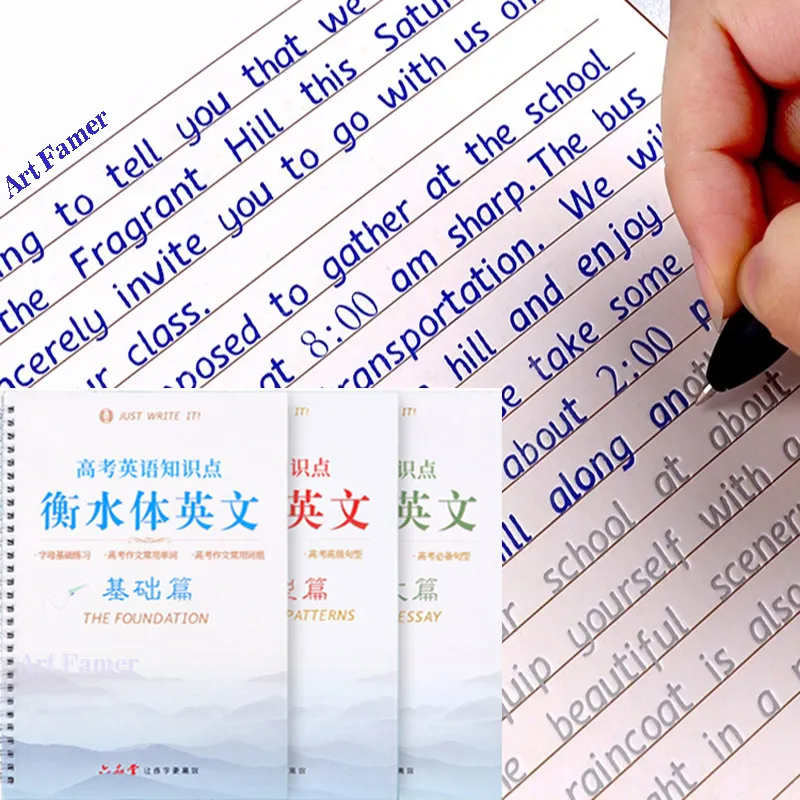 to tell you that we
Fragrant Hill this Satur
the
invite you to go with us on
class.
to gather at the school
at 8:00 am sharp. The bus
We
hill and enjoy
take some
about 2:00 p
along
school at about
yourself with a
beautiful scenery
raincoat is also
in a
Art Famer
JUST WRITE IT!
高考英语知识点
衡水体英文
·字母基础练习 ·高考作文常用单词 ·高考作文常用词组
基础篇
THE FOUNDATION
Art Famer
六品堂 让练字更高效
IT!
识点
英文
·高考高级句型
型篇
PATTERNS
识点
英文
·高考必备句型
篇
ESSAY